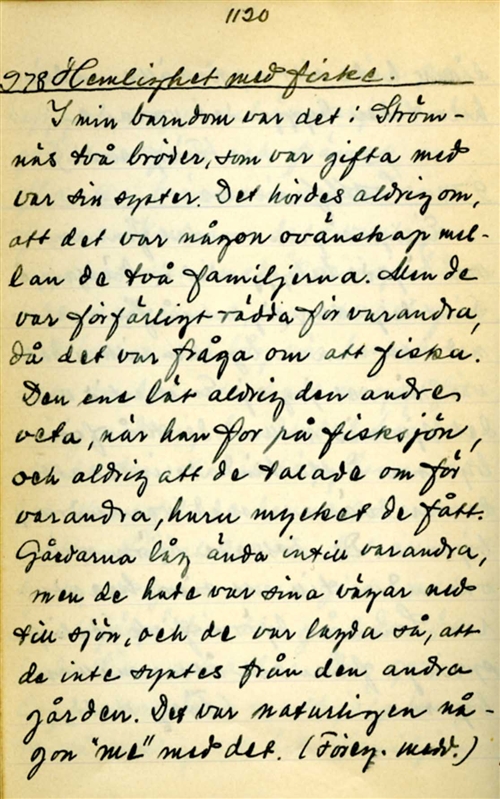 1120
978 Hemlighet med fiske.
I min barndom var det i Ström-
näs två bröder, som var gifta med
var sin syster. Det hördes aldrig om,
att det var någon ovänskap mel-
lan de två familjerna. Men de
var förfärligt rädda för varandra,
då det var fråga om att fiska.
Den ene lät aldrig den andre
veta, när han for på fisksjön,
och aldrig att de talade om för
varandra, huru mycket de fått.
Gårdarna låg ända intill varandra,
men de hade var sina vägar ned
till sjön, och de var lagda så, att
de inte syntes från den andra
gården. Det var naturligen nå-
gon "me" med det. (Föreg. medd.)